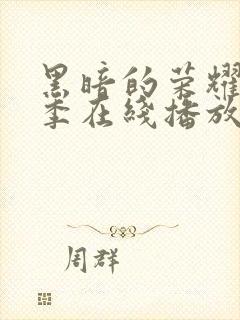 黑暗的荣耀
季在线播放
周群